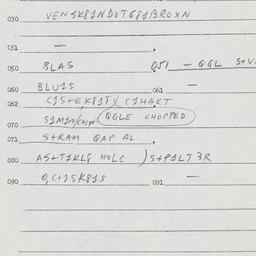 030 VENSK81NDOT681BROXN
031 —
050 BLAS 051 — QGL S+V
060 BLU1S 061 —
062 C1S+EK81TY C1HAKT
070 S1M1N/ QGLE CHOPPED
071 S+RAM QAP AL
080 AS+T1KL8 HOLC ) S+P1LT 3R
090 0,C+1SK81S 091 —